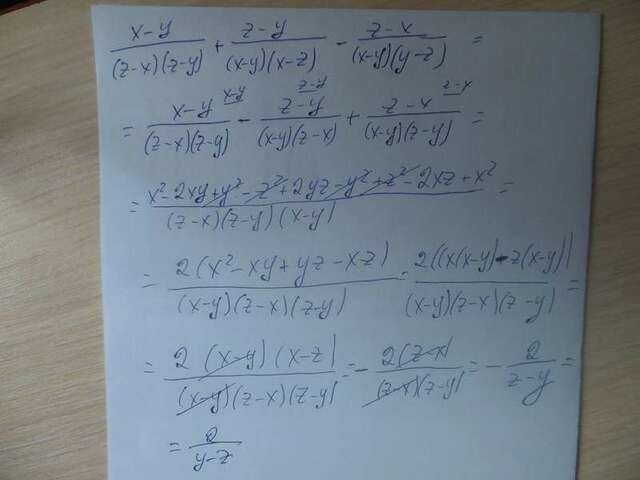 (x-y)/((z-x)(z-y)) + (z-y)/((x-y)(x-z)) - (z-x)/((x-y)(y-z)) =
= (x-y)/((z-x)(z-y)) x-y - (z-y)/((x-y)(z-x)) z-y + (z-x)/((x-y)(z-y)) z-x =
= (x²-2xy+y²-z²+2yz-y²+z²-2xz+x²)/((z-x)(z-y)(x-y)) =
= 2(x²-xy+yz-xz)/((x-y)(z-x)(z-y)) = 2((x(x-y)-z(x-y))/((x-y)(z-x)(z-y)) =
= 2(x-y)(x-z)/((x-y)(z-x)(z-y)) = - 2(z-x)/((z-x)(z-y)) = - 2/(z-y) =
= 2/(y-z)